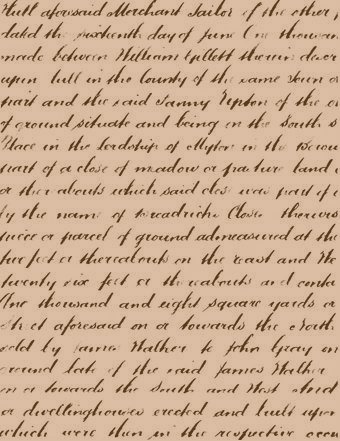 Hull aforesaid Merchant Tailor of the other p
dated the sixteenth day of June One thousan
made between William Gillett therein descr
upon Hull in the County of the same Town o
part and the said Fanny Upton of the o
of ground situate and being on the South s
Place in the Lordship of Myton in the
part of a close of meadow or pasture land
or thereabouts which said close was part of
by the name of Close
piece or parcel of ground admeasured at the
two feet or thereabouts on the East and We
twenty six feet or thereabouts and conta
One thousand and eight square yards or
Street aforesaid on or towards the North
sold by James Walker to John Gray on
ground late of the said James Walker
on or towards the South and West And
or dwellinghouses erected and built upon
which were then in the respective occu